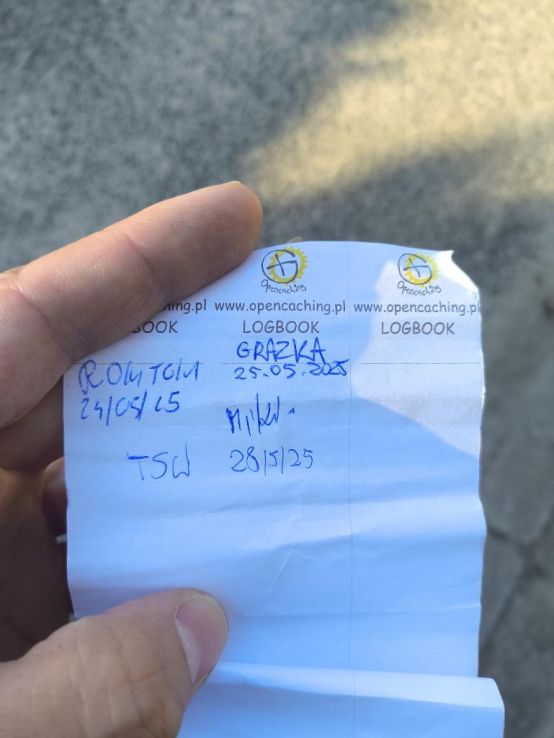 Opencaching
Opencaching
ing.pl www.opencaching.pl www.opencaching.pl
BOOK LOGBOOK LOGBOOK
GRAZKA
25.05.2025
ROMTOM
24/05/25
TSW 28/5/25